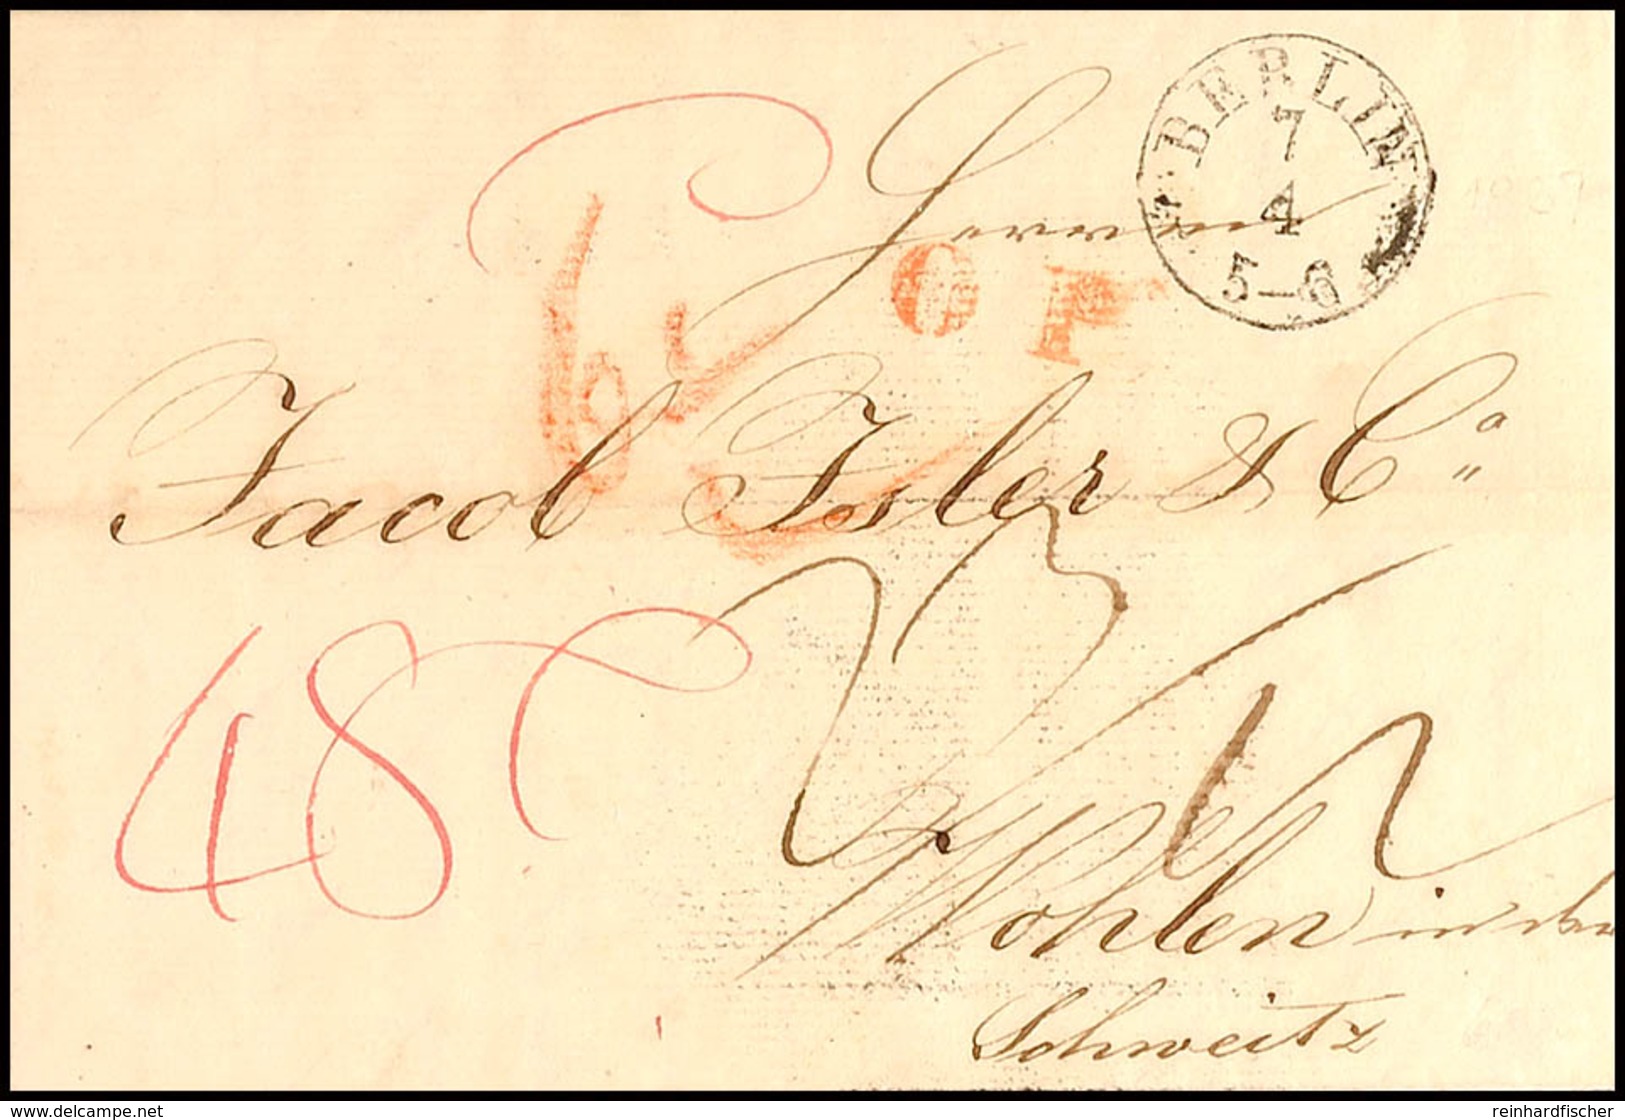 BERLIN
7
4
5-6
Herren
Jacob Isler & Co
48
Wohlen in der
Schweitz
www.delcampe.net
reinhardfischer